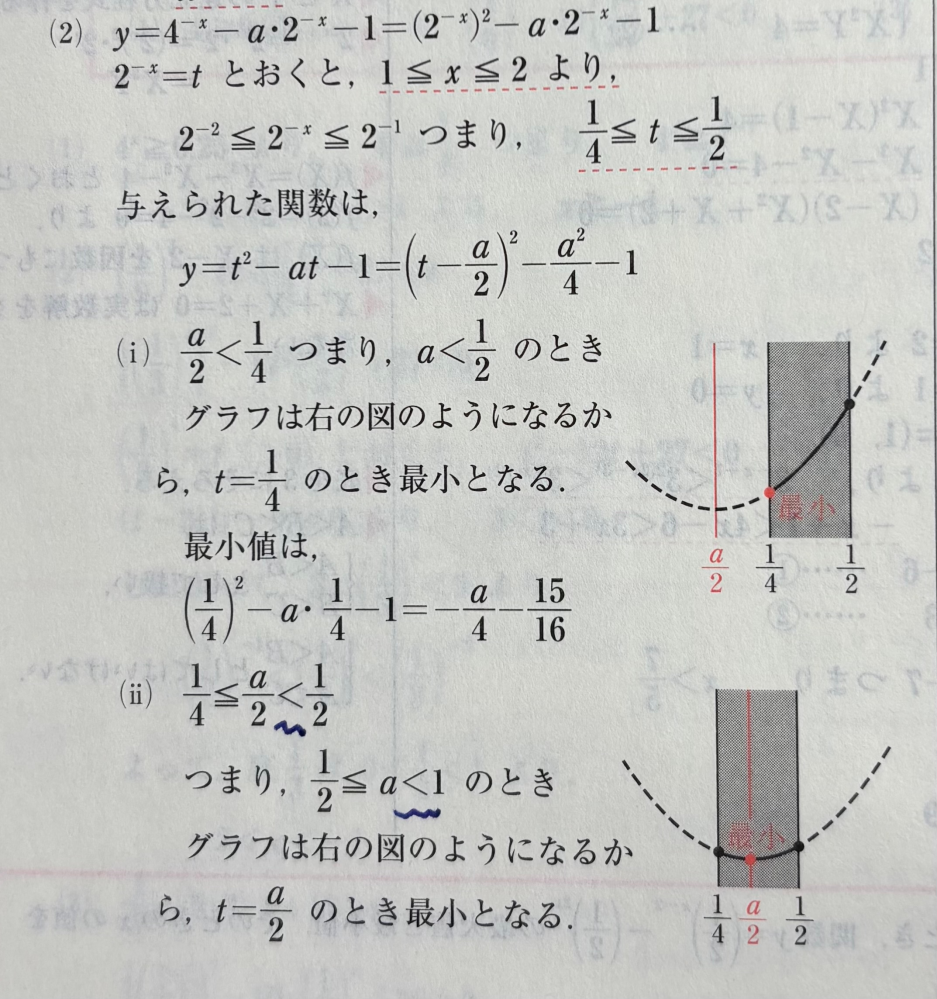 (2) y=4^{-x}-a·2^{-x}-1=(2^{-x})²-a·2^{-x}-1
2^{-x}=t とおくと, 1≦x≦2 より,
2^{-2}≦2^{-x}≦2^{-1} つまり, 1/4≦t≦1/2
与えられた関数は,
y=t²-at-1=(t-a/2)²-a²/4-1
(i) a/2<1/4 つまり, a<1/2 のとき
グラフは右の図のようになるか
ら, t=1/4 のとき最小となる.
最小
a/2 1/4 1/2
最小値は,
(1/4)²-a·1/4-1=-a/4-15/16
(ii) 1/4≦a/2<1/2
つまり, 1/2≦a<1 のとき
グラフは右の図のようになるか
ら, t=a/2 のとき最小となる.
最小
1/4 a/2 1/2